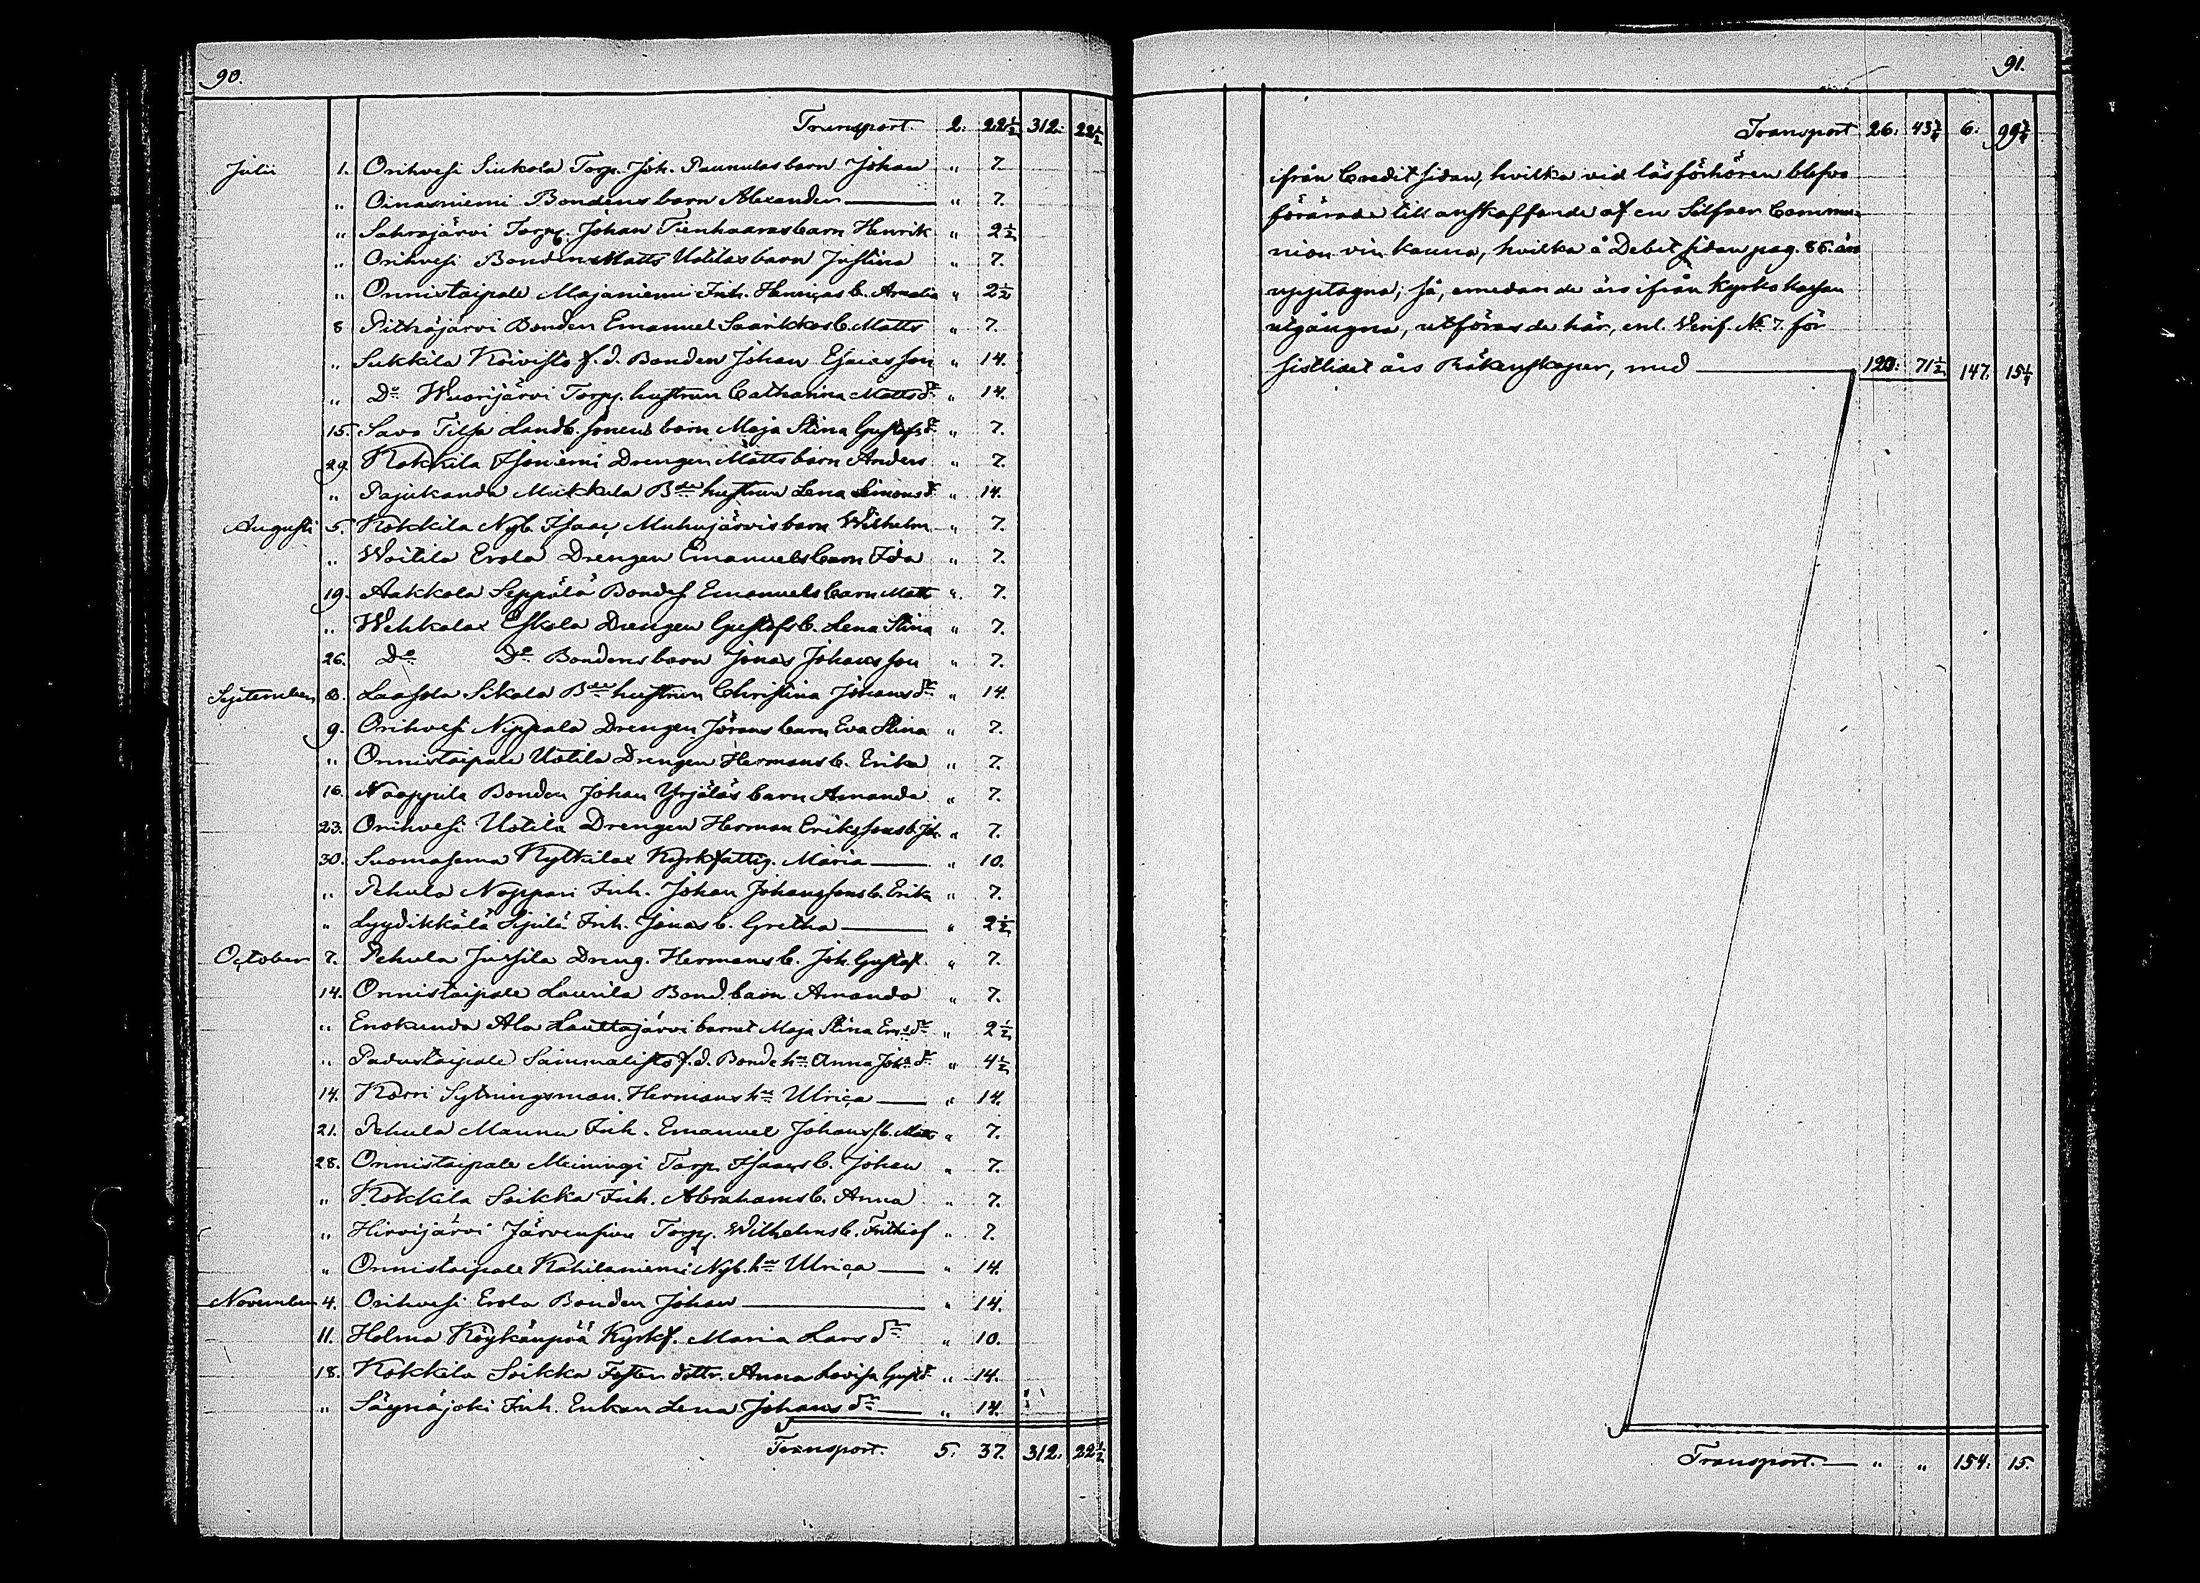 90.
Transport. 2. 22½ 312. 22½
Julii 1. Orihvesi Siukola Torp. Joh. Paunulas barn Johan " 7.
" Oinasniemi Bondens barn Alexander " 7.
" Sahrajärvi Torp. Johan Tienhaaras barn Henrik " 2½
" Orihvesi Bonden Matts Uotilas barn Justina " 7.
" Onnistaipale Majaniemi Inh. Henrics b. Amalia " 2½
8 Pitkäjärvi Bonden Emanuel Saarikkos b. Matts " 7.
" Sukkila Koivisto f.d. Bonden Johan Esaiasson " 14.
" Do Wuorijärvi Torp. hustrun Catharina Mattsdr " 14.
15. Savo Tilsa Landb. sonens barn Maja Stina Gustafsdr " 7.
29. Kokkila Isoniemi Drengen Matts barn Anders " 7.
" Pajukanda Mickkela Bde hustrun Lena Simonsdr " 14.
Augusti 5. Kokkila Nyb. Isaac Muhujärvis barn Wilhelm " 7.
" Woitila Erola Drengen Emanuels barn Ida " 7.
19. Aakkola Seppälä Bondes Emanuels barn Matt " 7.
" Wehkalax Eskola Drengen Gustafs b. Lena Stina " 7.
26. Do Do Bondens barn Jonas Johansson " 7.
September 8. Laasola Sikala Bde hustrun Christina Johansdr " 14.
9. Orihvesi Nippala Drengen Jörans barn Eva Stina " 7.
" Onnistaipale Uotila Drengen Hermans b. Erika " 7.
16. Naappila Bonden Johan Yrjäläs barn Amanda " 7.
23. Orihvesi Uotila Drengen Herman Erikssons b. Joh. " 7.
30. Suomasema Kylkilax Kyrkfattig. Maria " 10.
" Pehula Noppari Inh. Johan Johanssons b. Erika " 7.
" Lyydikkälä Sipilä Inh. Jonas b. Gretha " 2½
October 7. Pehula Jussila Dreng. Hermans b. Joh. Gustaf " 7.
14. Onnistaipale Laurila Bond. barn Amanda " 7.
" Enokunda Ala Lauttajärvi barnet Maja Stina Ersdr " 2½
" Padustaipale Sammalisto f.d. Bonde hu Anna Johdr " 4½
14. Karri Sytningsman. Hermans hu Ulrica " 14.
21. Pehula Mannu Inh. Emanuel Johanss. b. Matts " 7.
28. Onnistaipale Meiningi Torp. Isaacs b. Johan " 7.
" Kokkila Soikka Inh. Abrahams b. Anna " 7.
" Hirvijärvi Järvensivu Torp. Wilhelms b. Frithiof " 7.
" Onnistaipale Kahilaniemi Nyb. hu Ulrica " 14.
November 4. Orihvesi Erola Bonden Johan " 14.
11. Holma Köykänpää Kyrkf. Maria Larsdr " 10.
18. Kokkila Soikka Foster dottr. Anna Lovisa Gustd. " 14.
" Säynäjoki Inh. Enkan Lena Johansdr " 14.
Transport. 5. 37. 312. 22½
91.
Transport 26. 43¾ 6. 99¾
ifrån Credit sidan, hvilka vid läsförhören blefvo
förärade till anskaffande af en Silfver Commu-
nion vin kanna, hvilka å Debet sidan pag. 86. äro
upptagna; så, emedan de äro ifrån Kyrko kassan
utgångna, utföras de här, enl. Verif. No 7. för
sistlidet års Räkenskaper, med 120. 71½ 147. 15¼
Transport. " " 154. 15.